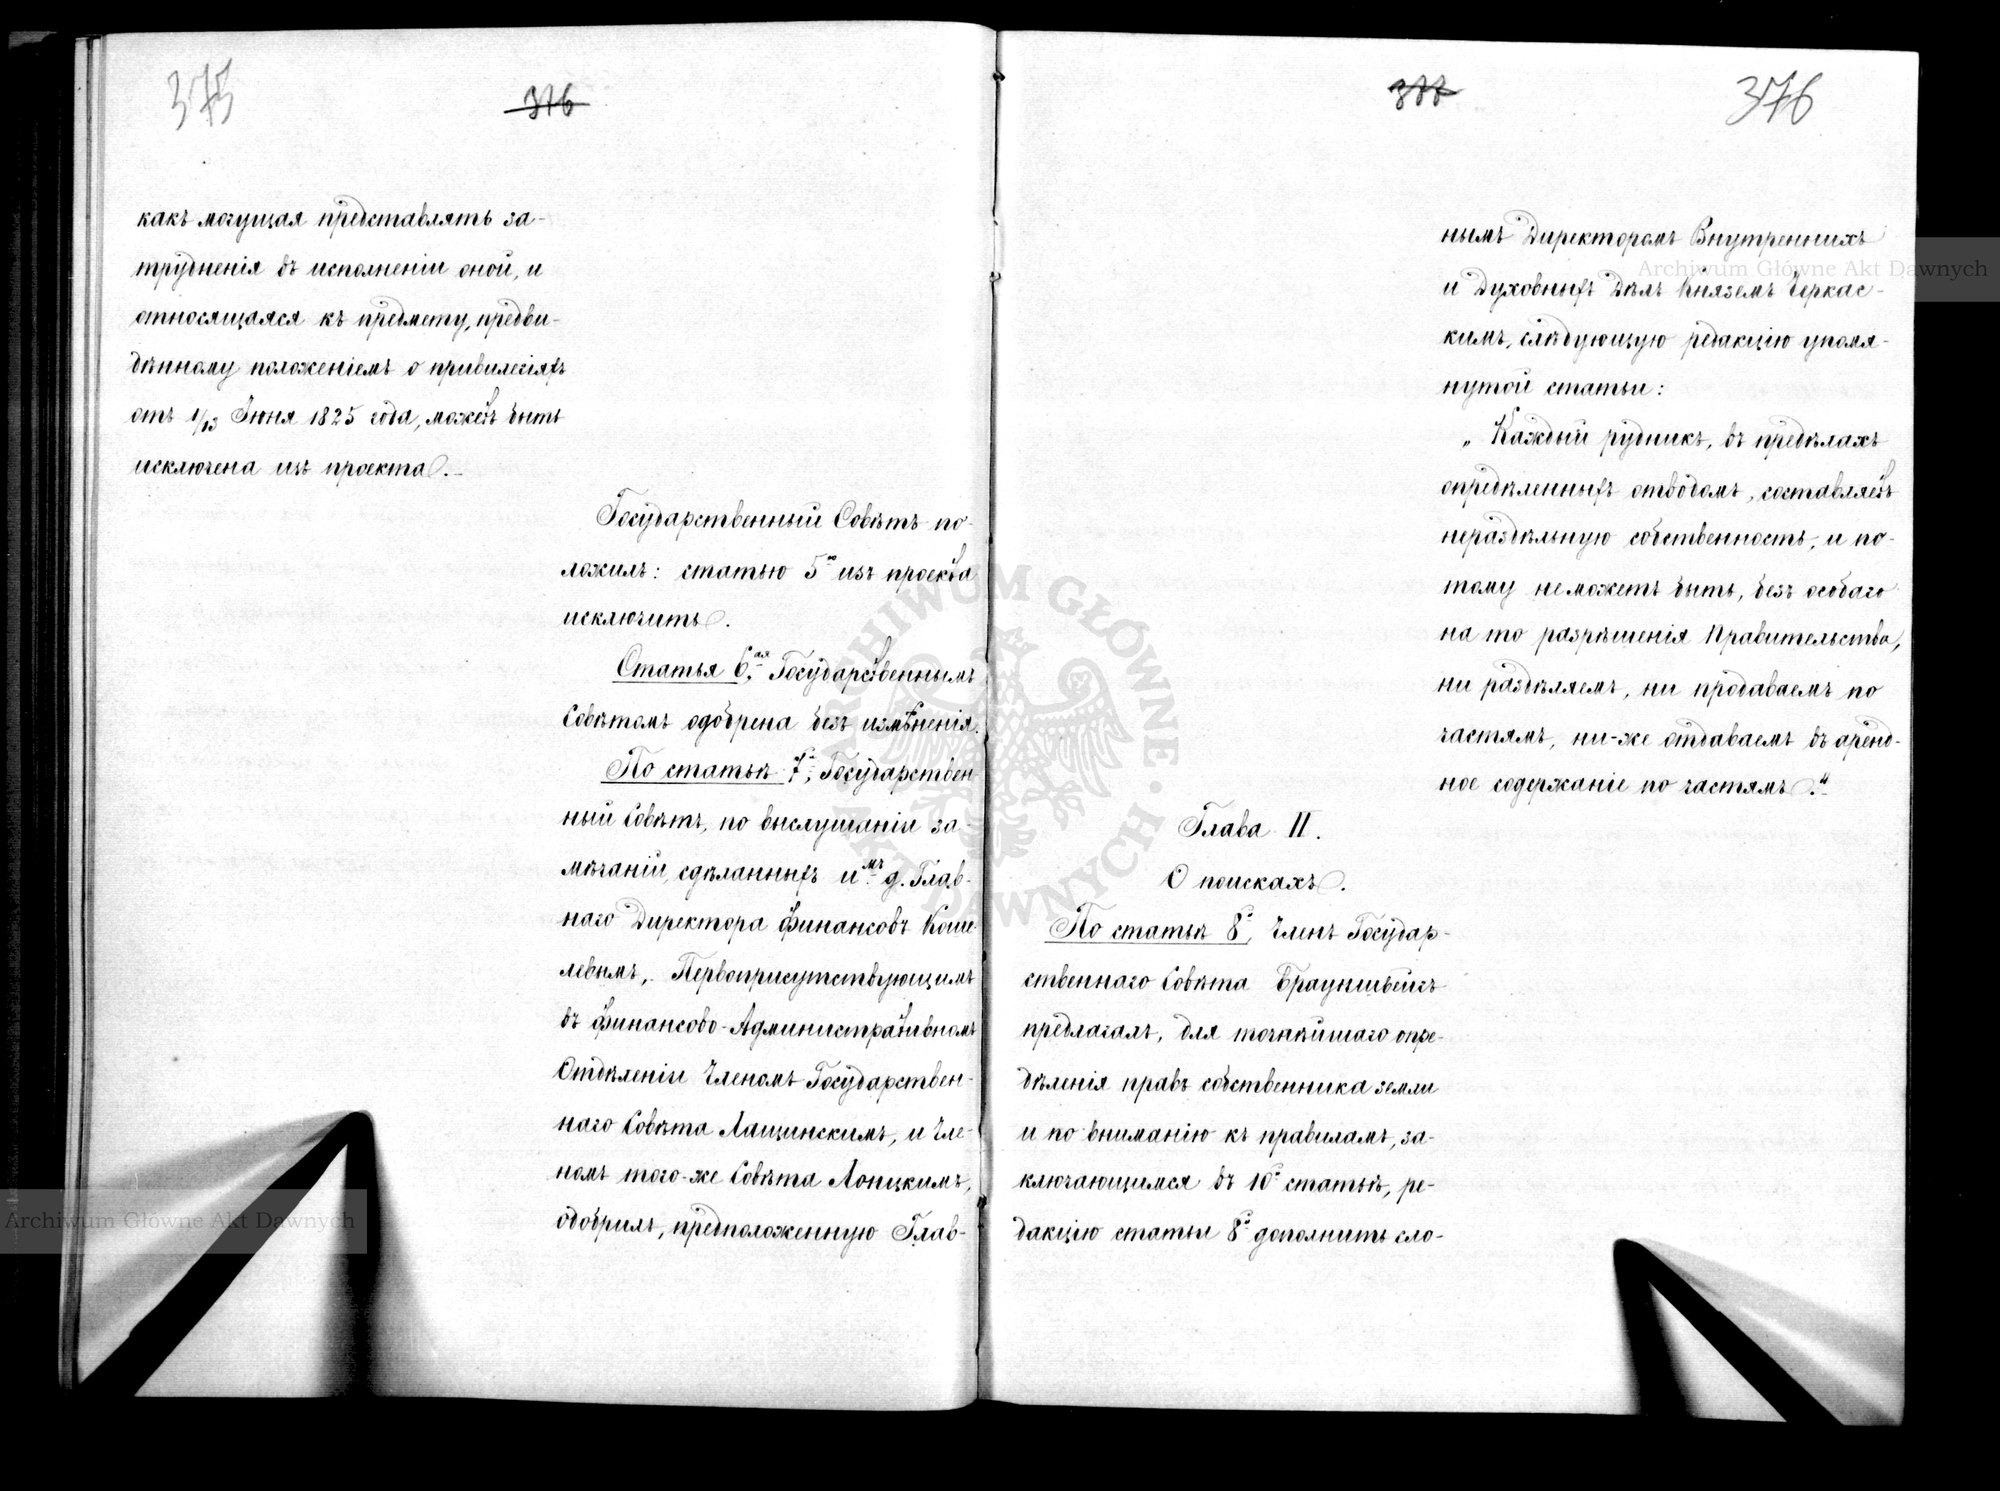 375
376
какъ могущая представлять за-
трудненія въ исполненіи оной, и
относящаяся къ предмету, предви-
дѣнному положеніемъ о привилегіяхъ
отъ 1/13 Іюня 1825 года, можетъ быть
исключена изъ проекта.
Государственный Совѣтъ по-
ложилъ: статью 5ю изъ проекта
исключить.
Статья 6ая, Государственнымъ
Совѣтомъ одобрена безъ измѣненія.
По статьѣ 7й, Государствен-
ный Совѣтъ, по выслушаніи за-
мѣчаній, сдѣланныхъ и.мъ д. Глав-
наго Директора Финансовъ Коше-
левымъ, Первоприсутствующимъ
въ Финансово-Административномъ
Отдѣленіи Членомъ Государствен-
наго Совѣта Лащинскимъ, и Чле-
номъ того-же Совѣта Лоницкимъ,
одобрилъ, предположенную Глав-
377
376
нымъ Директоромъ Внутреннихъ
и Духовныхъ Дѣлъ Княземъ Черкас-
кимъ, слѣдующую редакцію упомя-
нутой статьи:
„Каждый рудникъ, въ предѣлахъ
опредѣленныхъ отводомъ, составляетъ
нераздѣльную собственность, и по-
тому не можетъ быть, безъ особаго
на то разрѣшенія Правительства,
ни раздѣляемъ, ни продаваемъ по
частямъ, ни-же отдаваемъ въ аренд-
ное содержаніе по частямъ."
Глава II.
О поискахъ.
По статьѣ 8й, Членъ Государ-
ственнаго Совѣта Брауншвейгъ
предлагалъ, для точнѣйшаго опре-
дѣленія правъ собственника земли
и по вниманію къ правиламъ, за-
ключающимся въ 10й статьѣ, ре-
дакцію статьи 8й дополнить сло-
Archiwum Główne Akt Dawnych
Archiwum Główne Akt Dawnych
ARCHIWUM GŁÓWNE AKT DAWNYCH